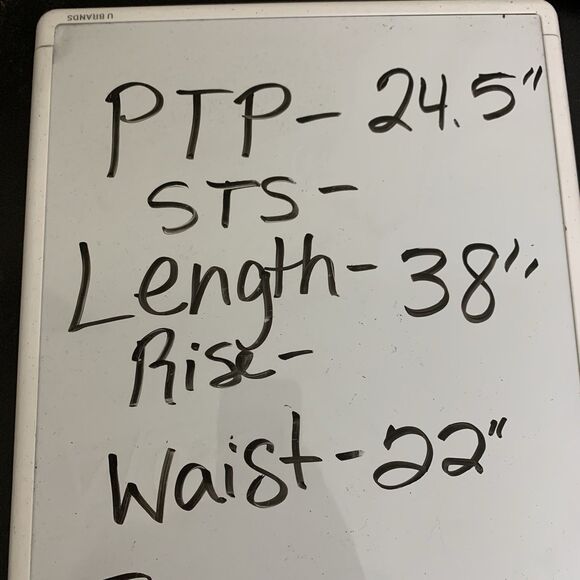 U BRANDS
PTP- 24.5"
STS-
Length- 38"
Rise-
Waist- 22"